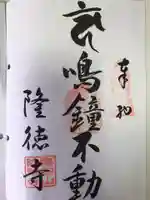 奉拝
鳴鐘不動
隆徳寺